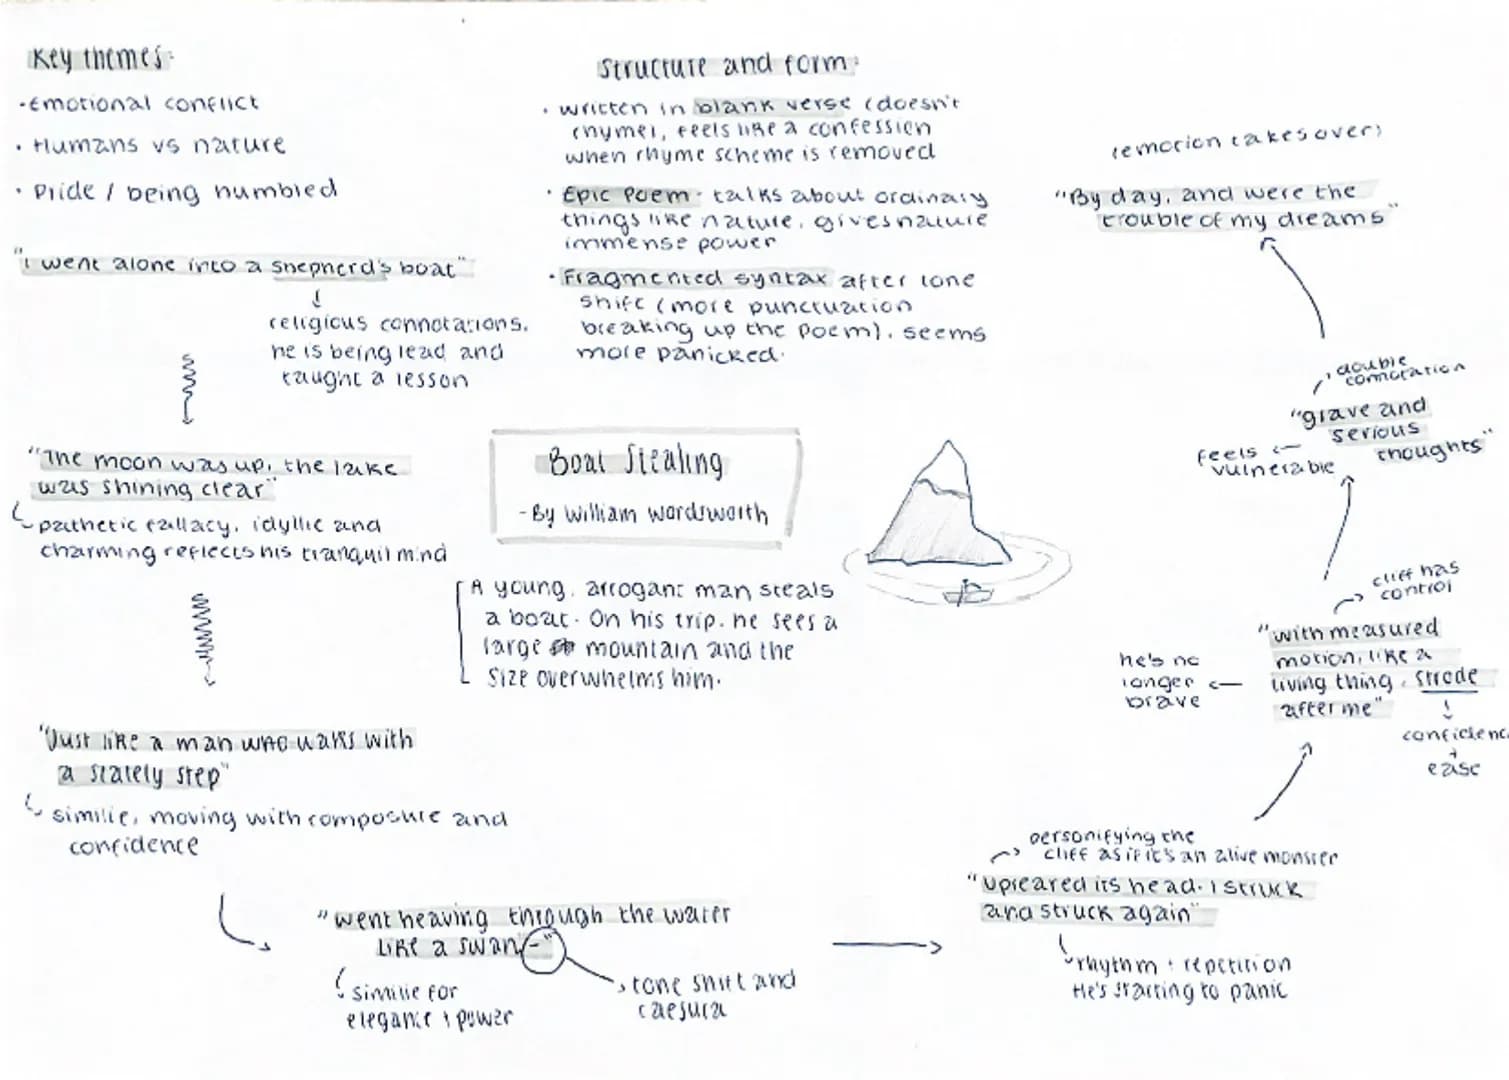 Key themes:
·Emotional conflict
· Humans vs nature
· Pride / being humbled
"I went alone into a shepherd's boat"
religious connotations.
he is being lead and
taught a lesson
"The moon was up, the lake
was shining clear"
pathetic fallacy, idyllic and
charming reflects his tranquil mind
"Just like a man who walks with
a stately step"
similie, moving with composure and
confidence
"went heaving through the water
like a swan-"
similie for
elegance + power
tone shift and
caesura
Structure and form:
· written in blank verse (doesn't
rhyme), feels like a confession
when rhyme scheme is removed
· Epic Poem - talks about ordinary
things like nature, gives nature
immense power
· Fragmented syntax after tone
shift (more punctuation
breaking up the poem). seems
more panicked.
Boat Stealing
- By William Wordsworth
A young, arrogant man steals
a boat. On his trip, he sees a
large mountain and the
size overwhelms him.
personifying the
cliff as if it's an alive monster
"upreared its head. I struck
and struck again"
rhythm + repetition
He's starting to panic
cliff has
control
"with measured
motion, like a
living thing, strode
after me"
he's no
longer
brave
confidenc
+
ease
double
connotation
"grave and
serious
thoughts"
feels
vulnerable
(emotion takes over)
"By day, and were the
trouble of my dreams"